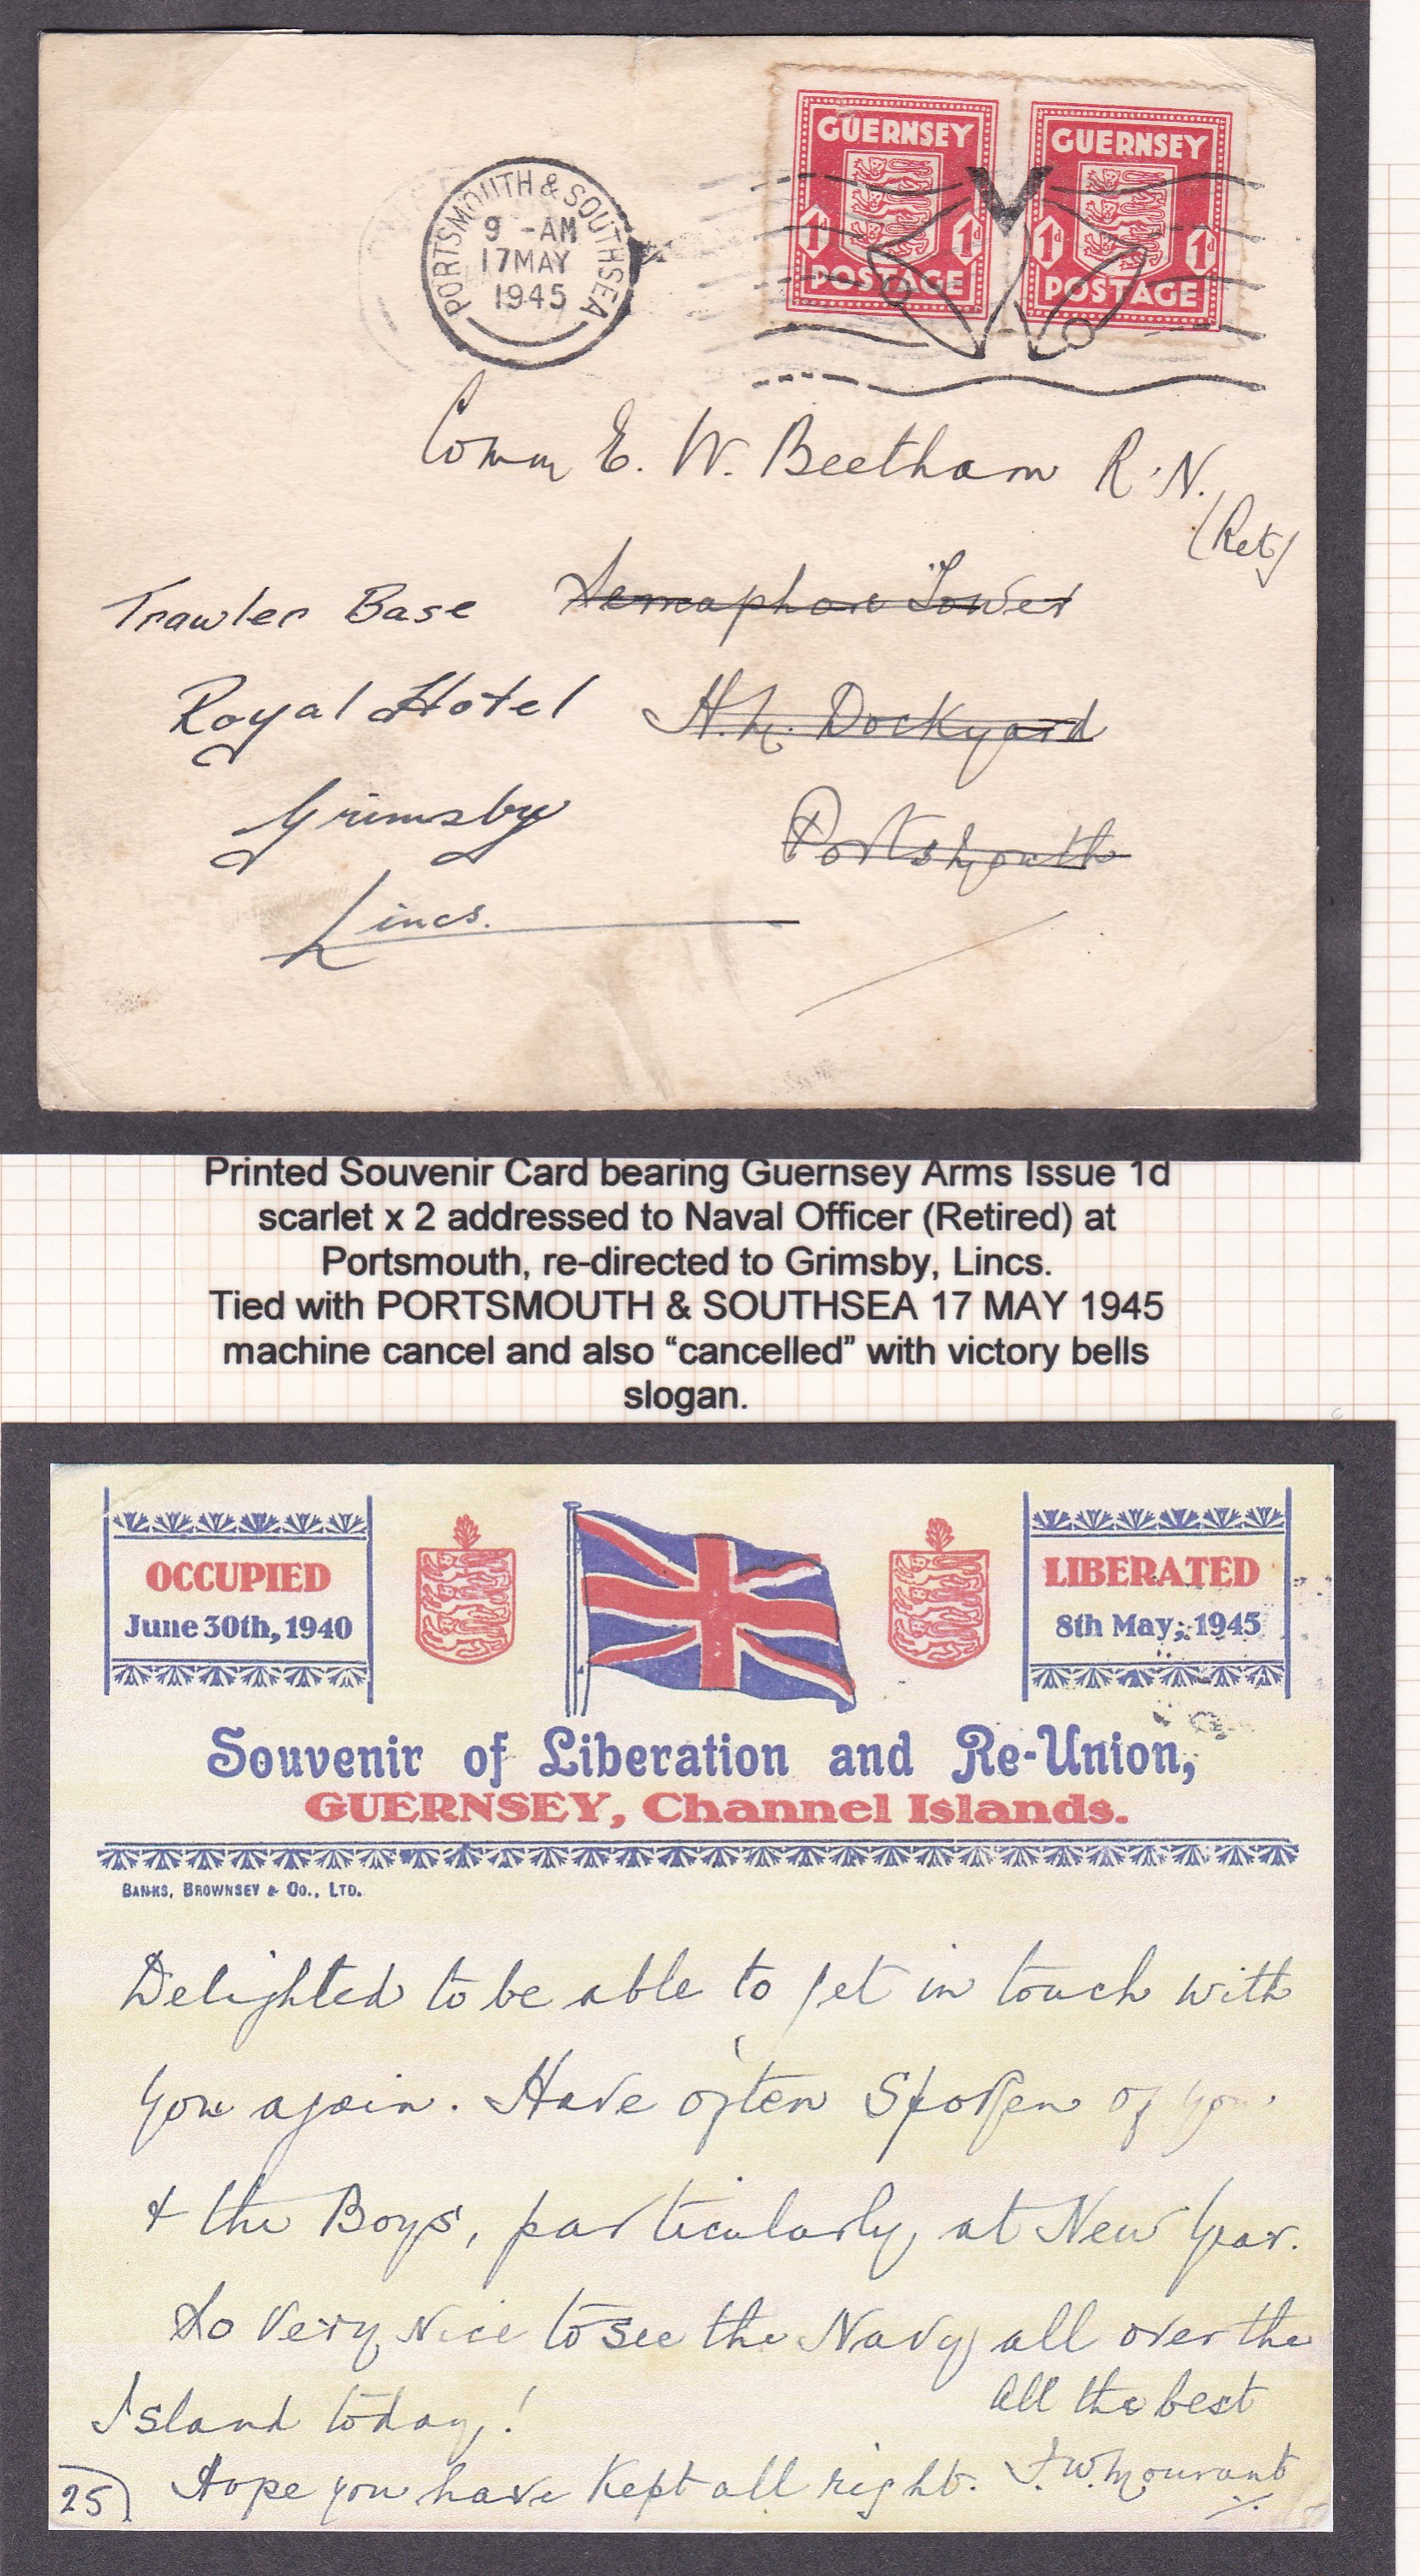 GUERNSEY
1d 1d
POSTAGE
GUERNSEY
1d 1d
POSTAGE
PORTSMOUTH & SOUTHSEA
9 -AM
17MAY
1945
Comm E. W. Beetham R.N.
(Ret)
Trawler Base Semaphore Tower
Royal Hotel H.M. Dockyard
Grimsby Portsmouth
Lincs.
Printed Souvenir Card bearing Guernsey Arms Issue 1d
scarlet x 2 addressed to Naval Officer (Retired) at
Portsmouth, re-directed to Grimsby, Lincs.
Tied with PORTSMOUTH & SOUTHSEA 17 MAY 1945
machine cancel and also “cancelled” with victory bells
slogan.
OCCUPIED
June 30th, 1940
LIBERATED
8th May, 1945
Souvenir of Liberation and Re-Union,
GUERNSEY, Channel Islands.
BANKS, BROWNSEY & CO., LTD.
Delighted to be able to get in touch with
you again. Have often spoken of you
& the Boys, particularly at New Year.
So very nice to see the Navy all over the
Island today!
All the best
25) Hope you have kept all right. J.W. Mourant